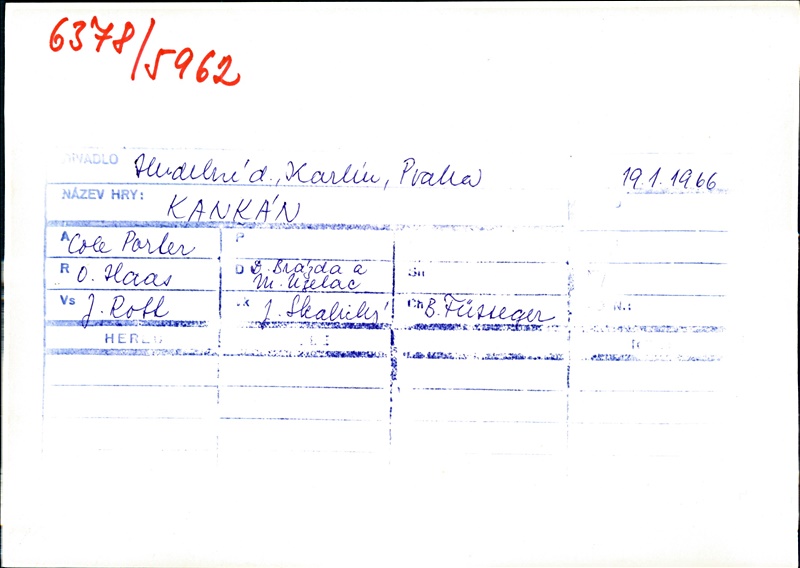 6378/5962
DIVADLO Hudební d., Karlín, Praha 19.1.1966
NÁZEV HRY: KANKÁN
A Cole Porter P
R O. Haas D D. Brázda a M. Uzelac Sn
Vs J. Rotl k J. Skalický Ch B. Füsseger N.:
HEREC